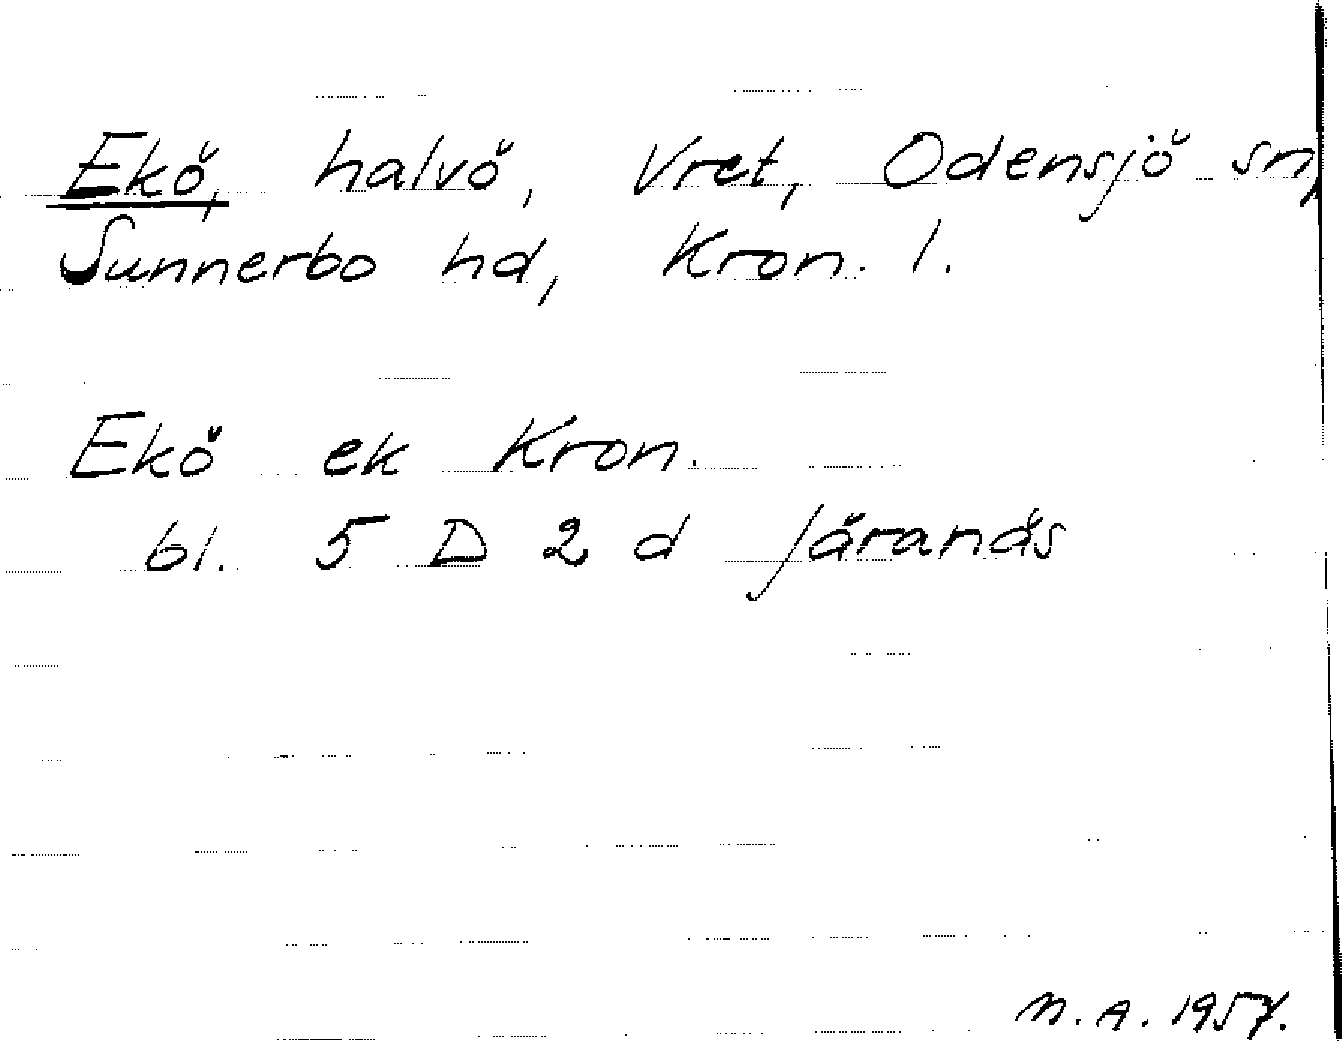 Ekö, halvö, Vret, Odensjö sn,
Sunnerbo hd, Kron. l.
Ekö ek Kron.
bl. 5 D 2 d Järanäs
N.A. 1957.